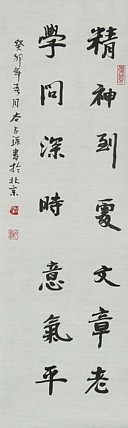 精神到處文章老
學問深時意氣平
癸卯年
書於北京